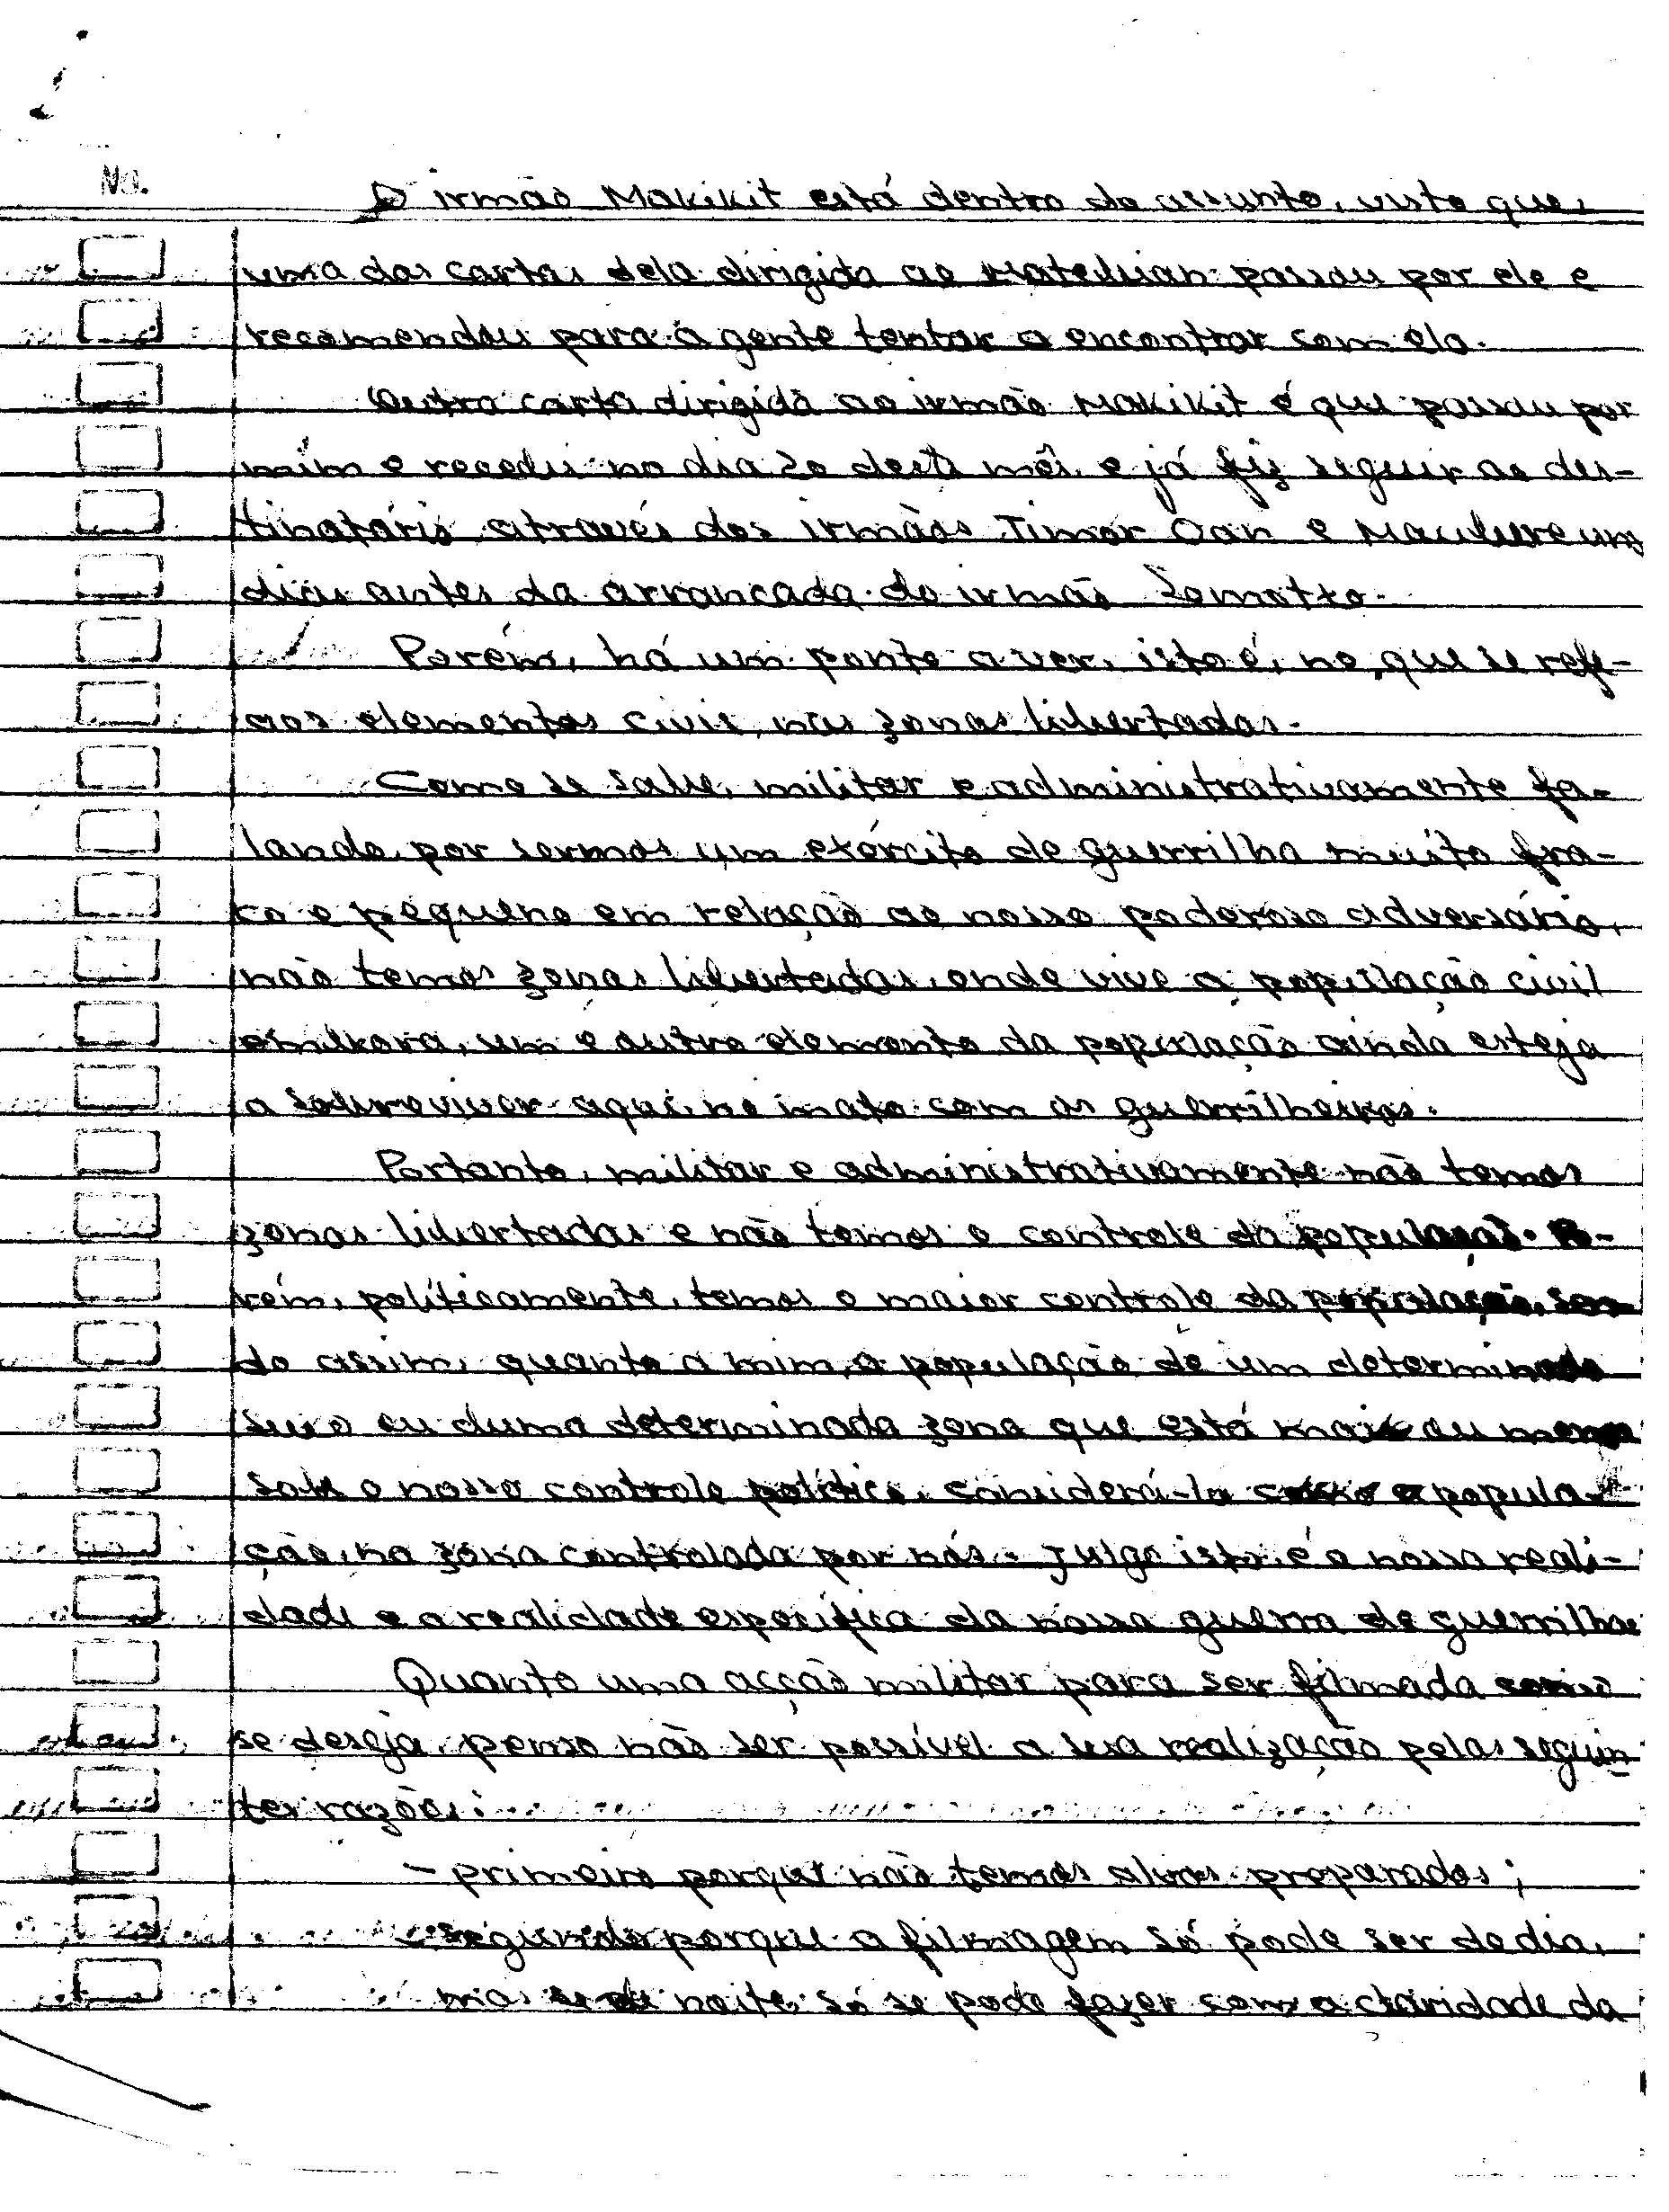 No.
O irmão Makikit está dentro do assunto, visto que,
uma das cartas dela dirigida ao passou por ele e
recomendou para a gente tentar a encontrar com ela.
Outra carta dirigida ao irmão Makikit é que passou por
mim e recebi no dia deste mês e já fiz seguir ao des-
tinatário através dos irmãos Timor Oan e um
dias antes da arrancada do irmão Somotxo.
Porém, há um ponto a ver, isto é, no que se refe-
aos elementos civis, nas zonas libertadas.
Como se sabe, militar e administrativamente fa-
lando, por sermos um exército de guerrilha muito fra-
co e pequeno em relação ao nosso poderoso adversário,
não temos zonas libertadas, onde vive a população civil
embora, um e outro elemento da população ainda esteja
a sobreviver aqui no mato com os guerrilheiros.
Portanto, militar e administrativamente não temos
zonas libertadas e não temos o controle da população. Po-
rém, políticamente, temos o maior controle da população, sen-
do assim, quanto a mim, a população de um determinado
suco ou duma determinada zona que está mais ou menos
sob o nosso controle político, considerá-la como a popula-
ção, na zona controlada por nós. Julgo isto, é a nossa reali-
dade e a realidade específica da nossa guerra de guerrilha
Quanto uma acção militar para ser filmada como
se deseja, penso não ser possível a sua realização pelas seguin
tes razões:
- primeiro porque não temos alvos preparados;
- segundo porque a filmagem só pode ser de dia,
mas de noite só se pode fazer com a claridade da